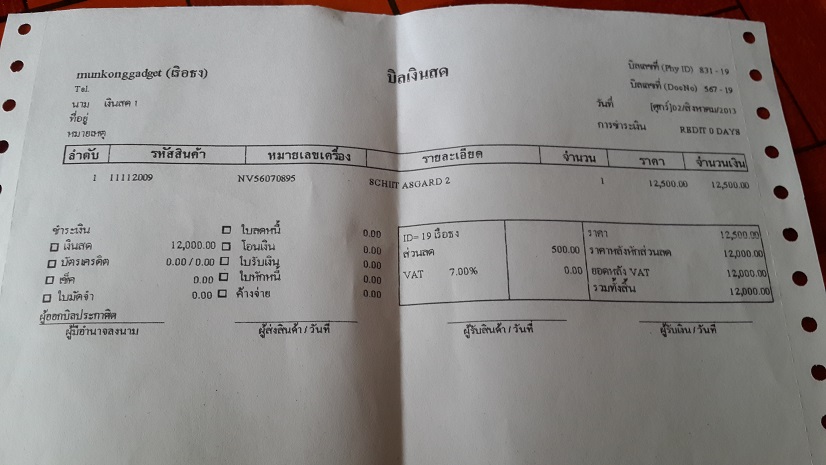 munkonggadget (เรือธง)
บิลเงินสด
บิลเลขที่ (Phy ID) 831 - 19
Tel.
บิลเลขที่ (DocNo) 567 - 19
นาม เงินสด 1
วันที่ [ศุกร์]02/สิงหาคม/2013
ที่อยู่
การชำระเงิน REDIT 0 DAYS
หมายเหตุ
ลำดับ รหัสสินค้า หมายเลขเครื่อง รายละเอียด จำนวน ราคา จำนวนเงิน
1 11112009 NV56070895 SCHIIT ASGARD 2 1 12,500.00 12,500.00
ชำระเงิน ใบลดหนี้ 0.00
เงินสด 12,000.00 โอนเงิน 0.00
บัตรเครดิต 0.00 / 0.00 ใบรับเงิน 0.00
เช็ค 0.00 ใบหักหนี้ 0.00
ใบมัดจำ 0.00 ค้างจ่าย 0.00
ID= 19 เรือธง ราคา 12,500.00
ส่วนลด 500.00 ราคาหลังหักส่วนลด 12,000.00
VAT 7.00% 0.00 ยอดหลัง VAT 12,000.00
รวมทั้งสิ้น 12,000.00
ผู้ออกบิลประกาศิต
ผู้มีอำนาจลงนาม ผู้ส่งสินค้า / วันที่ ผู้รับสินค้า / วันที่ ผู้รับเงิน / วันที่